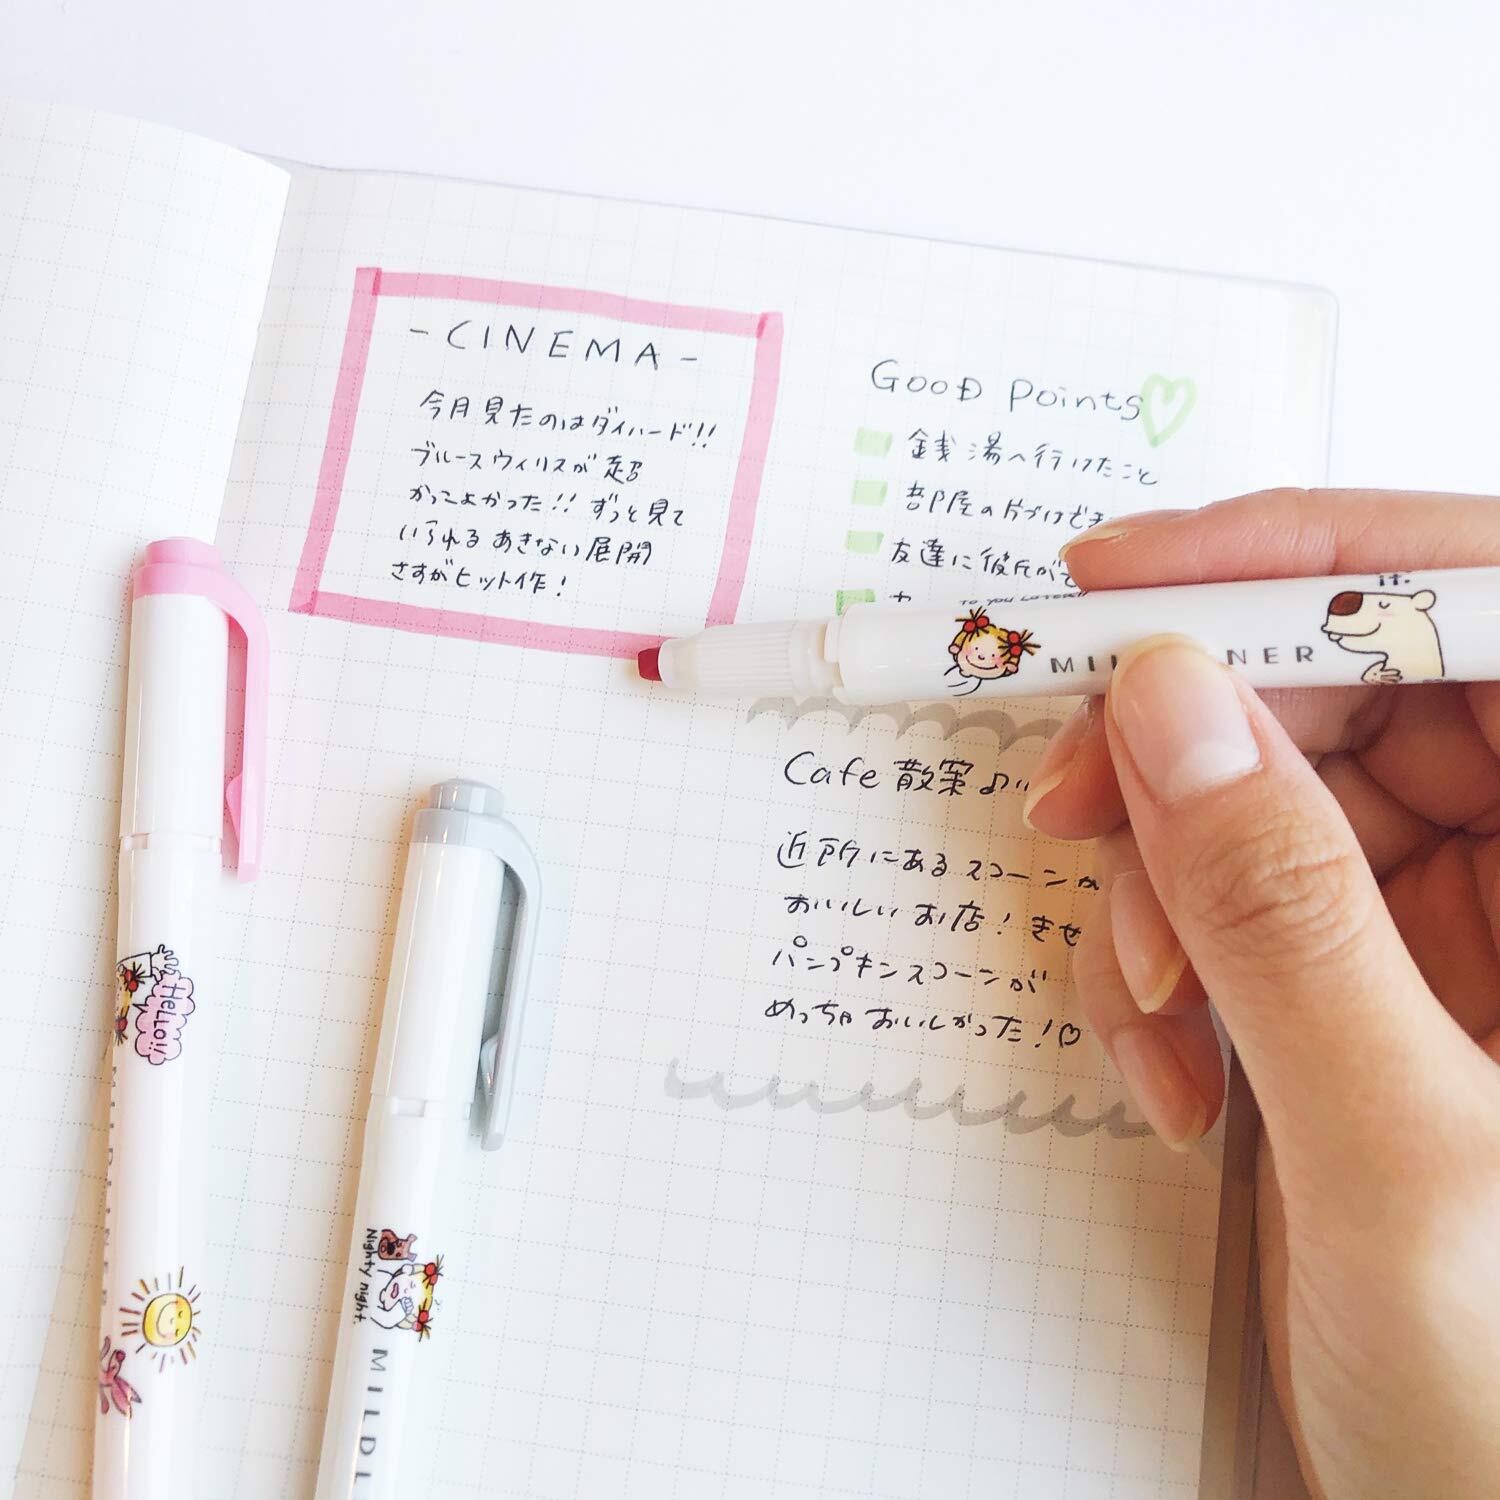 - CINEMA -
今月見たのはダイハード!!
ブルースウィリスが超
かっこよかった!! ずっと見て
いられる あきない展開
さすがヒット作!
GOOD Points♡
銭湯へ行けたこと
部屋の片づけでき
友達に彼氏がで
TO YOU LATER!!
it.
MIL NER
Cafe 散策♪
近所にあるスコーンが
おいしいお店! きせ
パンプキンスコーンが
めっちゃおいしかった!♡
HELLO!!
MILDLINER
Nighty night.
MILDL